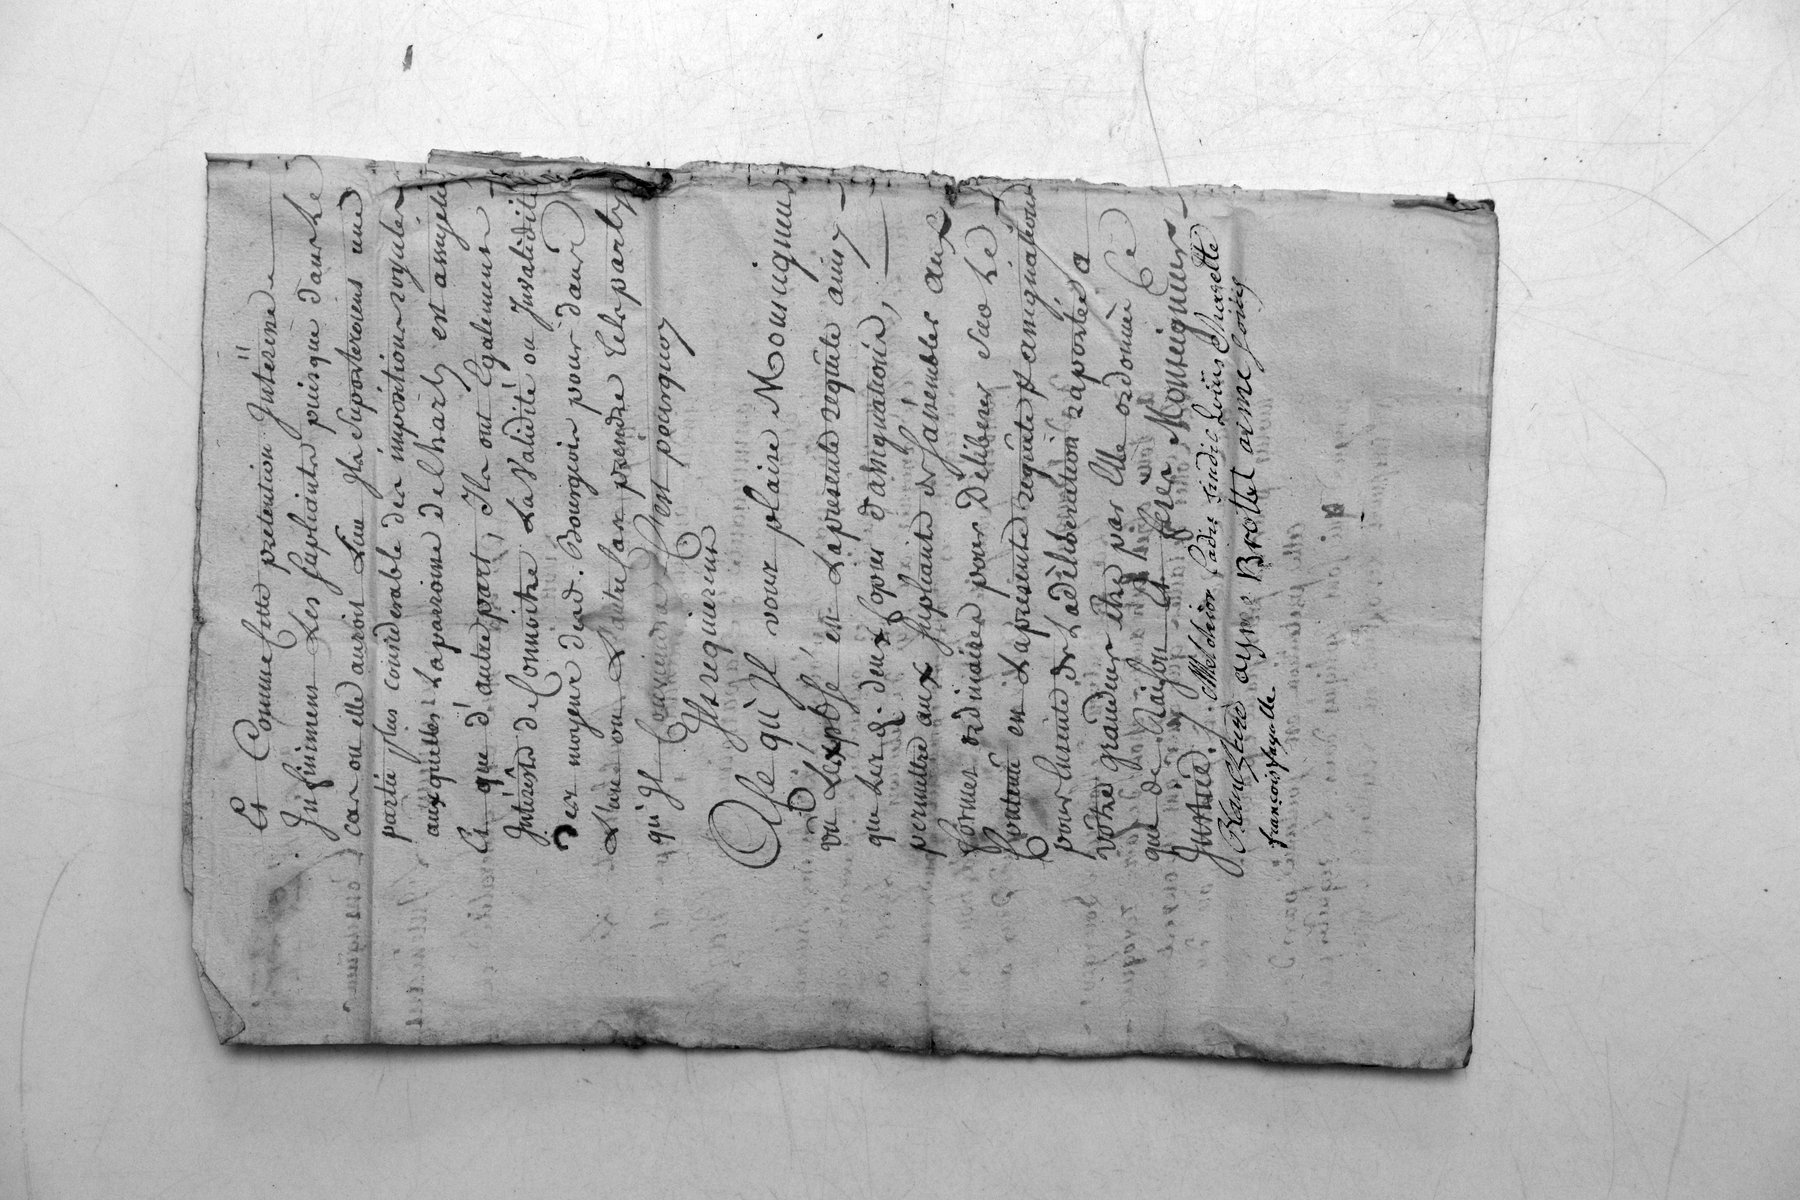 Et Comme Cette pretention Jnteresse
Jnfiniment Les supliants puisque dans le
cas ou elle auroit Lieu Jls suporteroins une
partie plus considerable des impositions royales
auxquelles La parroisse de lharly est assujetie
Et que d'autre part Jls ont Egalement
Jnterests de Connoitre La Validité ou Jnvalidité
des moyens dud. Bourgeois pour dans
L'une ou L'autre Cas prendre tels partis
qu'Jl Conviendra C'est pourquoy
Jls requierent
A Ce qu'Jl vous plaise Monseigneur
vu L'exposé en La presente requete ainsy
que les d. deux Copies d'assignations,
permettre aux supliants de s'assembler aux
formes ordinaires pour Déliberer sur le
Contenu en La presente requete & assignations
pour Ensuite de La déliberation raportée a
votre grandeur etre par Elle ordonné Ce
que de Raison Et ferés Monseigneur
Justice. / Melchior Ladre sindic Louis Chazelle
Blanchard ayne Brollet aime
françois